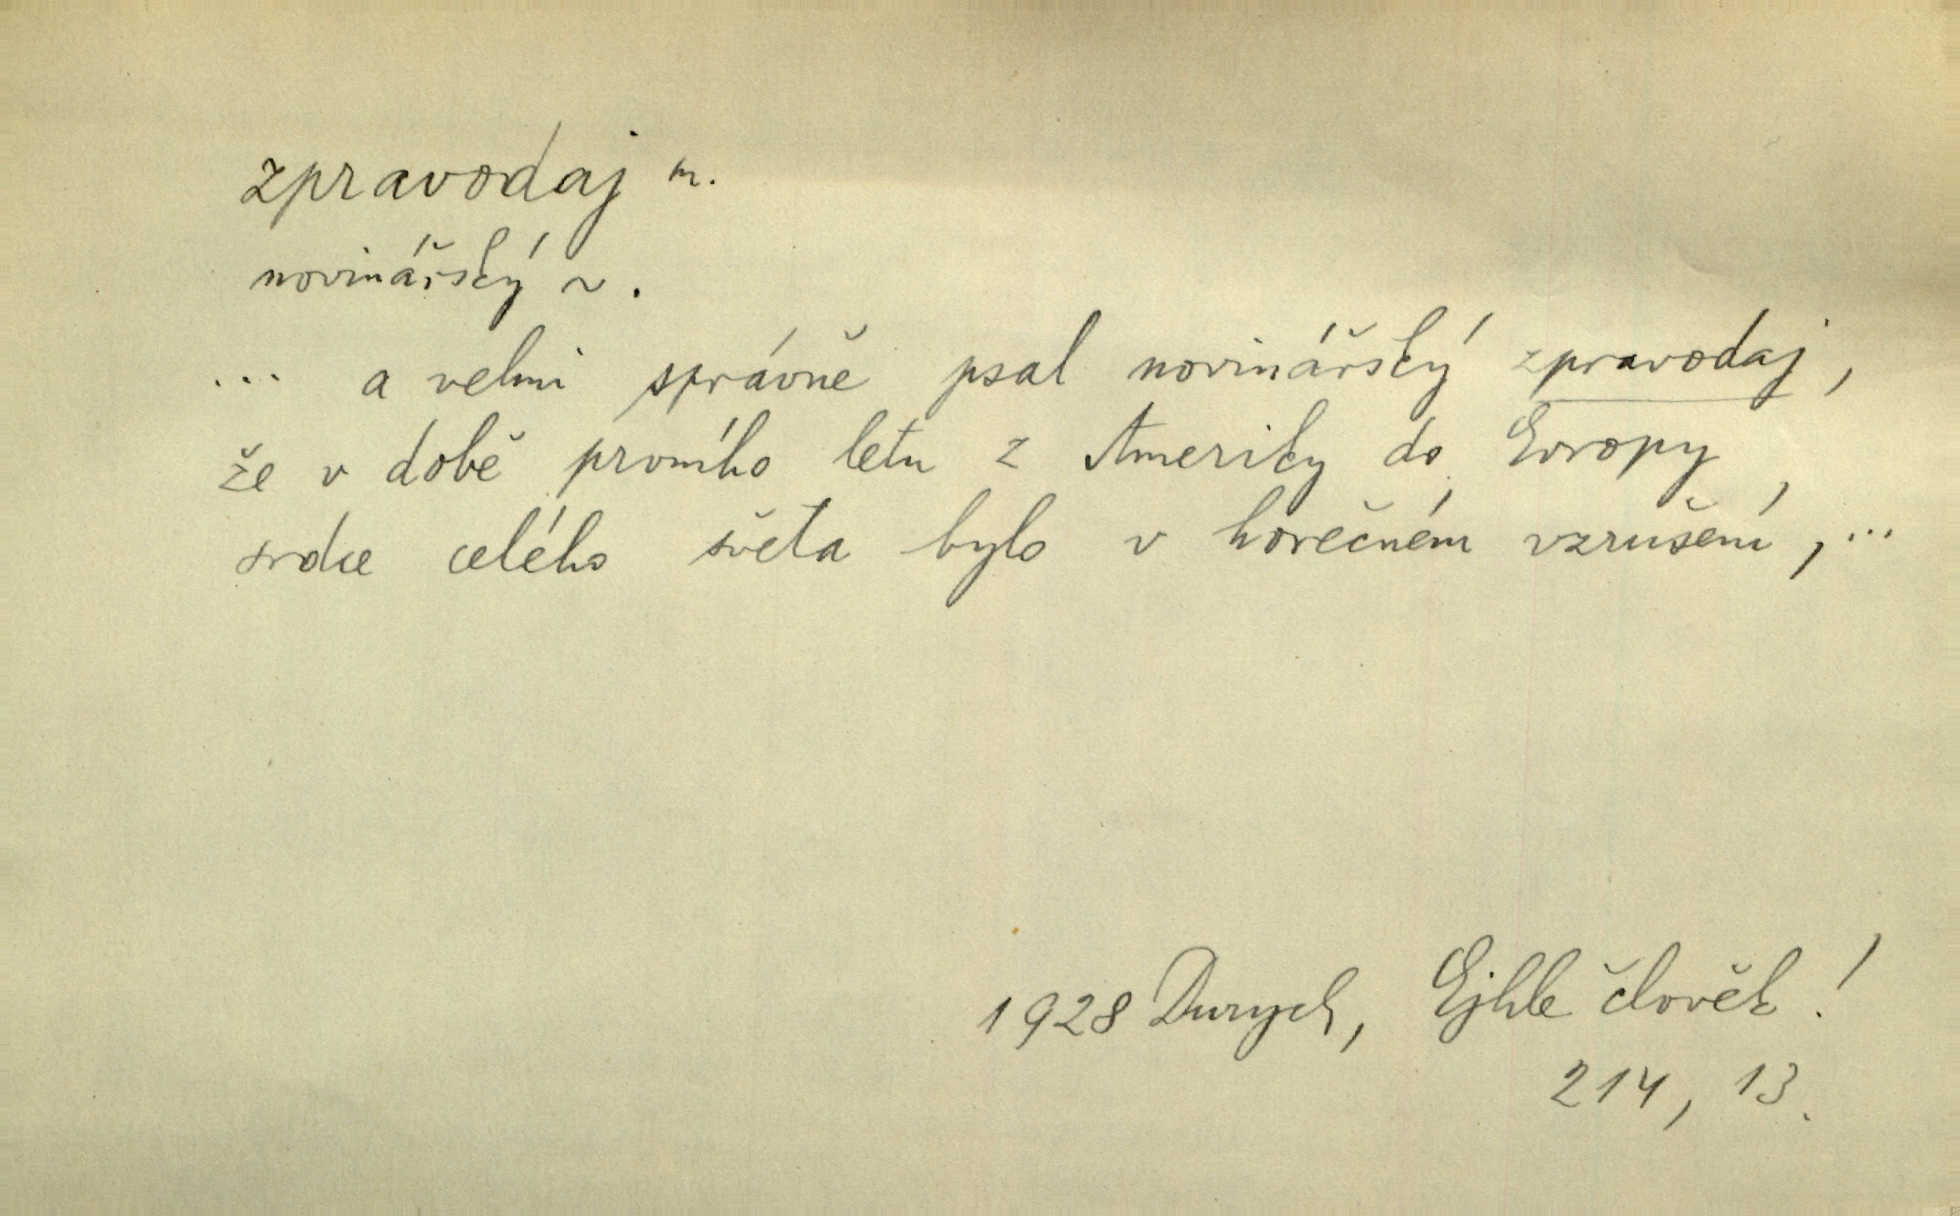 zpravodaj m.
novinářský ~.
... a velmi správně psal novinářský zpravodaj,
že v době prvního letu z Ameriky do Evropy
srdce celého světa bylo v horečném vzrušení, ...
1928 Durych, Ejhle člověk!
214, 13.